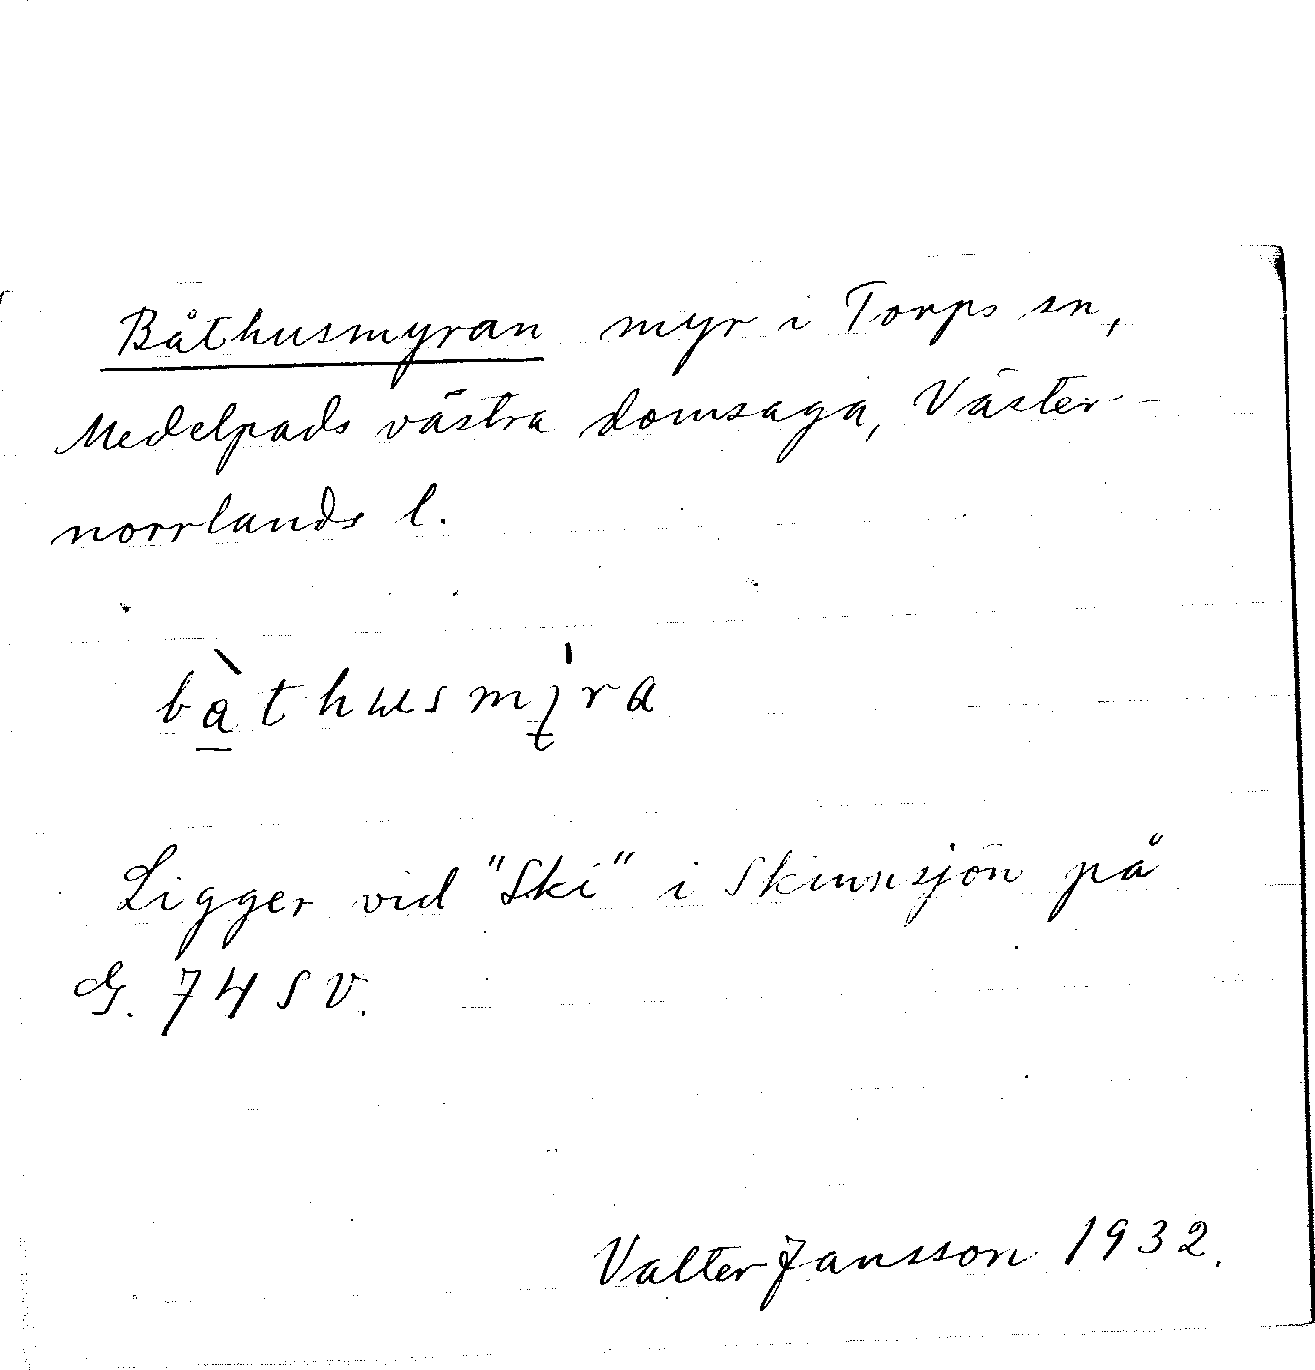 Båthusmyran myr i Torps sn,
Medelpads västra domsaga, Väster-
norrlands l.
Ligger vid "Ski" i Skinnsjön på
G. 74 SV.
Valter Jansson 1932.